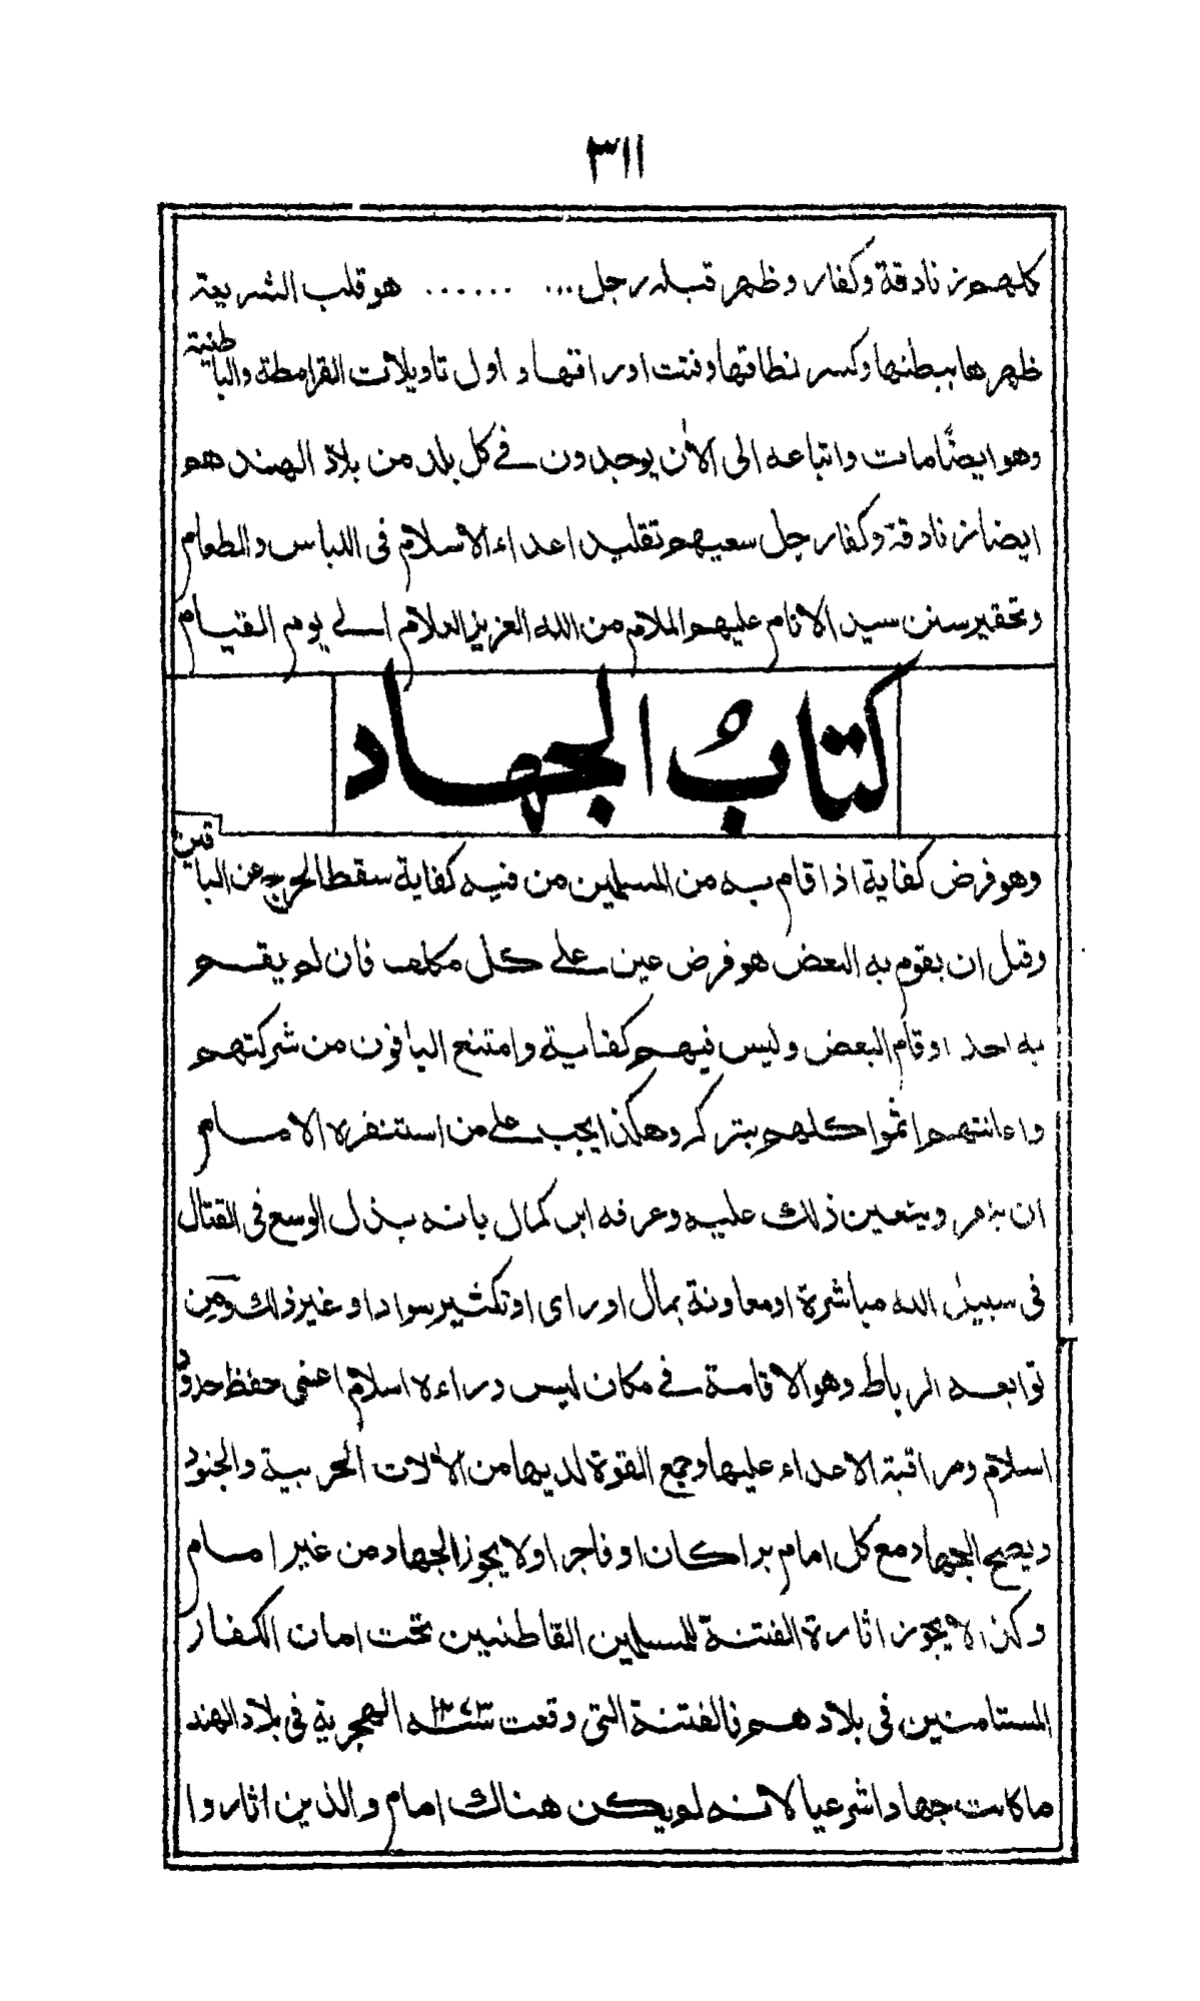 ٣١١
كلهم زنادقة وكفار وظهر قبله رجل ... ...... هو قلب الشريعة
ظهرها ببطنها وكسر نطاقها وفتت اوراقها و اول تاويلات القرامطة والباطنية
وهو ايضًا مات واتباعه الى الآن يوجدون في كل بلد من بلاد الهند هم
ايضا زنادقة وكفار جل سعيهم تقليد اعداء الاسلام فى اللباس والطعام
وتحقير سنن سيد الانام عليهم الملام من الله العزيز العلام الے يوم القيام
كتابُ الجهاد
وهو فرض كفاية اذا قام به من المسلمين من فيه كفاية سقط الحرج عن الباقين
وقبل ان يقوم به البعض هو فرض عين على كل مكلف فان لم يقم
به احد او قام البعض وليس فيهم كفاية وامتنع الباقون من شركتهم
واعانتهم اثموا كلهم بتركه وهكذا يجب على من استنفره الامام
ان ينفر ويتعين ذلك عليه وعرفه ابن كمال بانه بذل الوسع فى القتال
فى سبيل الله مباشرة او معاونة بمال او راى او تكثير سواد او غير ذلك ومن
توابعه الرباط وهو الاقامة في مكان ليس وراءه اسلام اعنى حفظ حدود
اسلام ومراقبة الاعداء عليها وجمع القوة لديها من الآلات الحربية والجنود
ويصح الجهاد مع كل امام برا كان او فاجرا ولا يجوز الجهاد من غير امام
وكذا لا يجوز اثارة الفتنة للمسلمين القاطنين تحت امان الكفار
المستامنين فى بلادهم فالفتنة التى وقعت سنة ١٢٧٣ الهجرية فى بلاد الهند
ما كانت جهادا شرعيا لانه لم يكن هناك امام والذين اثاروا